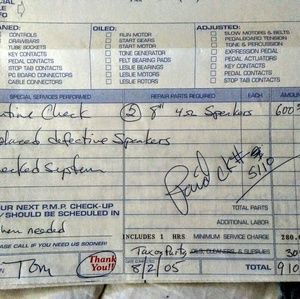 CIAL
FO
ANED:
OILED:
ADJUSTED:
CONTROLS
RUN MOTOR
SLOW MOTORS & BELTS
DRAWBARS
START GEARS
PEDALBOARD TENSION
TUBE SOCKETS
START MOTOR
TONE & PERCUSSION
KEY CONTACTS
TONE GENERATOR
EXPRESSION PEDAL
PEDAL CONTACTS
FELT BEARING PADS
PEDAL ACTUATORS
STOP TAB CONTACTS
LESLIE BEARINGS
KEY CONTACTS
PC BOARD CONNECTORS
LESLIE MOTORS
PEDAL CONTACTS
CABLE CONNECTORS
LESLIE ROTORS
STOP TAB CONTACTS
SPECIAL SERVICES PERFORMED
REPAIR PARTS REQUIRED
EACH
AMOUN
tine Check
② 8" 4Ω Speakers
600
placed defective Speakers
ecked System
Paid ck#
5110
TOTAL PARTS
OUR NEXT P.M.P. CHECK-UP
Y SHOULD BE SCHEDULED IN
ADDITIONAL LABOR
hen needed
INCLUDES 1 HRS
MINIMUM SERVICE CHARGE
280.
EASE CALL IF YOU NEED US SOONER!
Tax on Parts
CLEANERS & SUPPLIES
30
Tom
Thank You!!
8/2/05
TOTAL
910